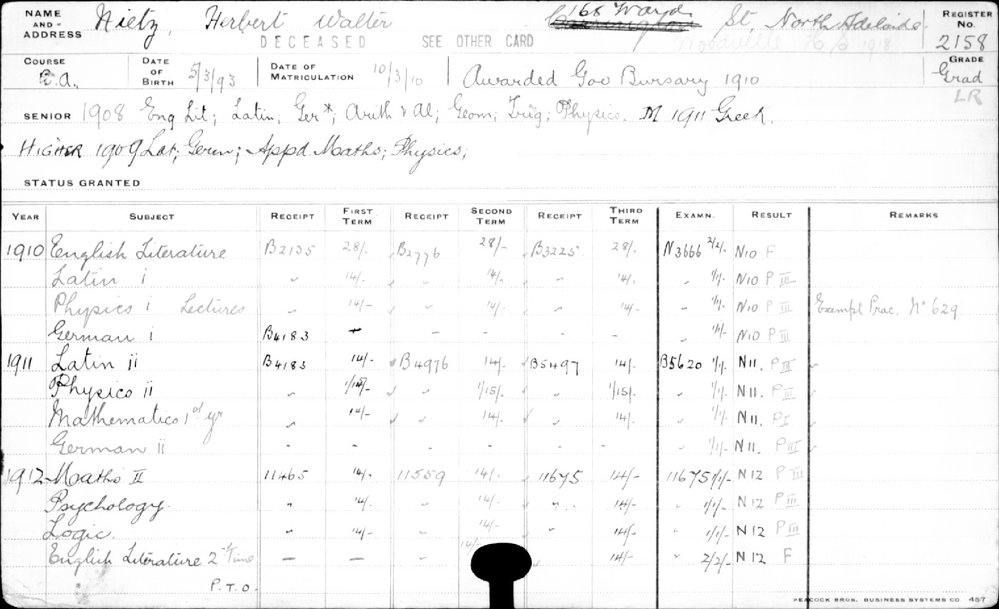 NAME AND ADDRESS Nietz, Herbert Walter 168 Ward St, North Adelaide REGISTER No. 2158
DECEASED SEE OTHER CARD
COURSE B.A. DATE OF BIRTH 5/3/93 DATE OF MATRICULATION 10/3/10 Awarded Gov Bursary 1910 GRADE Grad
LR
SENIOR 1908 Eng Lit; Latin, Ger*; Arith & Al; Geom; Trig; Physics. M 1911 Greek.
HIGHER 1909 Lat; Germ; Appd Maths; Physics;
STATUS GRANTED
YEAR SUBJECT RECEIPT FIRST TERM RECEIPT SECOND TERM RECEIPT THIRD TERM EXAMN. RESULT REMARKS
1910 English Literature B2135 28/- B2776 28/- B3225 28/- N3666 2/2/- N10 F
Latin i " 14/- " 14/- " 14/- " 1/1/- N10 P III
Physics i Lectures " 14/- " 14/- " 14/- " 1/1/- N10 P III Exempt Prac. No 629
German i B4183 - - - - - - 1/1/- N10 P III
1911 Latin ii B4183 14/- B4976 14/- B5497 14/- B5620 1/1/- N11. P III
Physics ii " 1/15/- " 1/15/- " 1/15/- " 1/1/- N11. P III
Mathematics 1st yr " 14/- " 14/- " 14/- " 1/1/- N11. P I
German ii - - - - - - - 1/1/- N11. P III
1912 Maths II 11465 14/- 11559 14/- 11675 14/- 11675 1/1/- N12 P III
Psychology " 14/- " 14/- " 14/- " 1/1/- N12 P III
Logic " 14/- " 14/- " 14/- " 1/1/- N12 P III
English Literature 2nd Time - - 14/- 14/- " 2/2/- N12 F
P.T.O.
PEACOCK BROS. BUSINESS SYSTEMS CO. 457